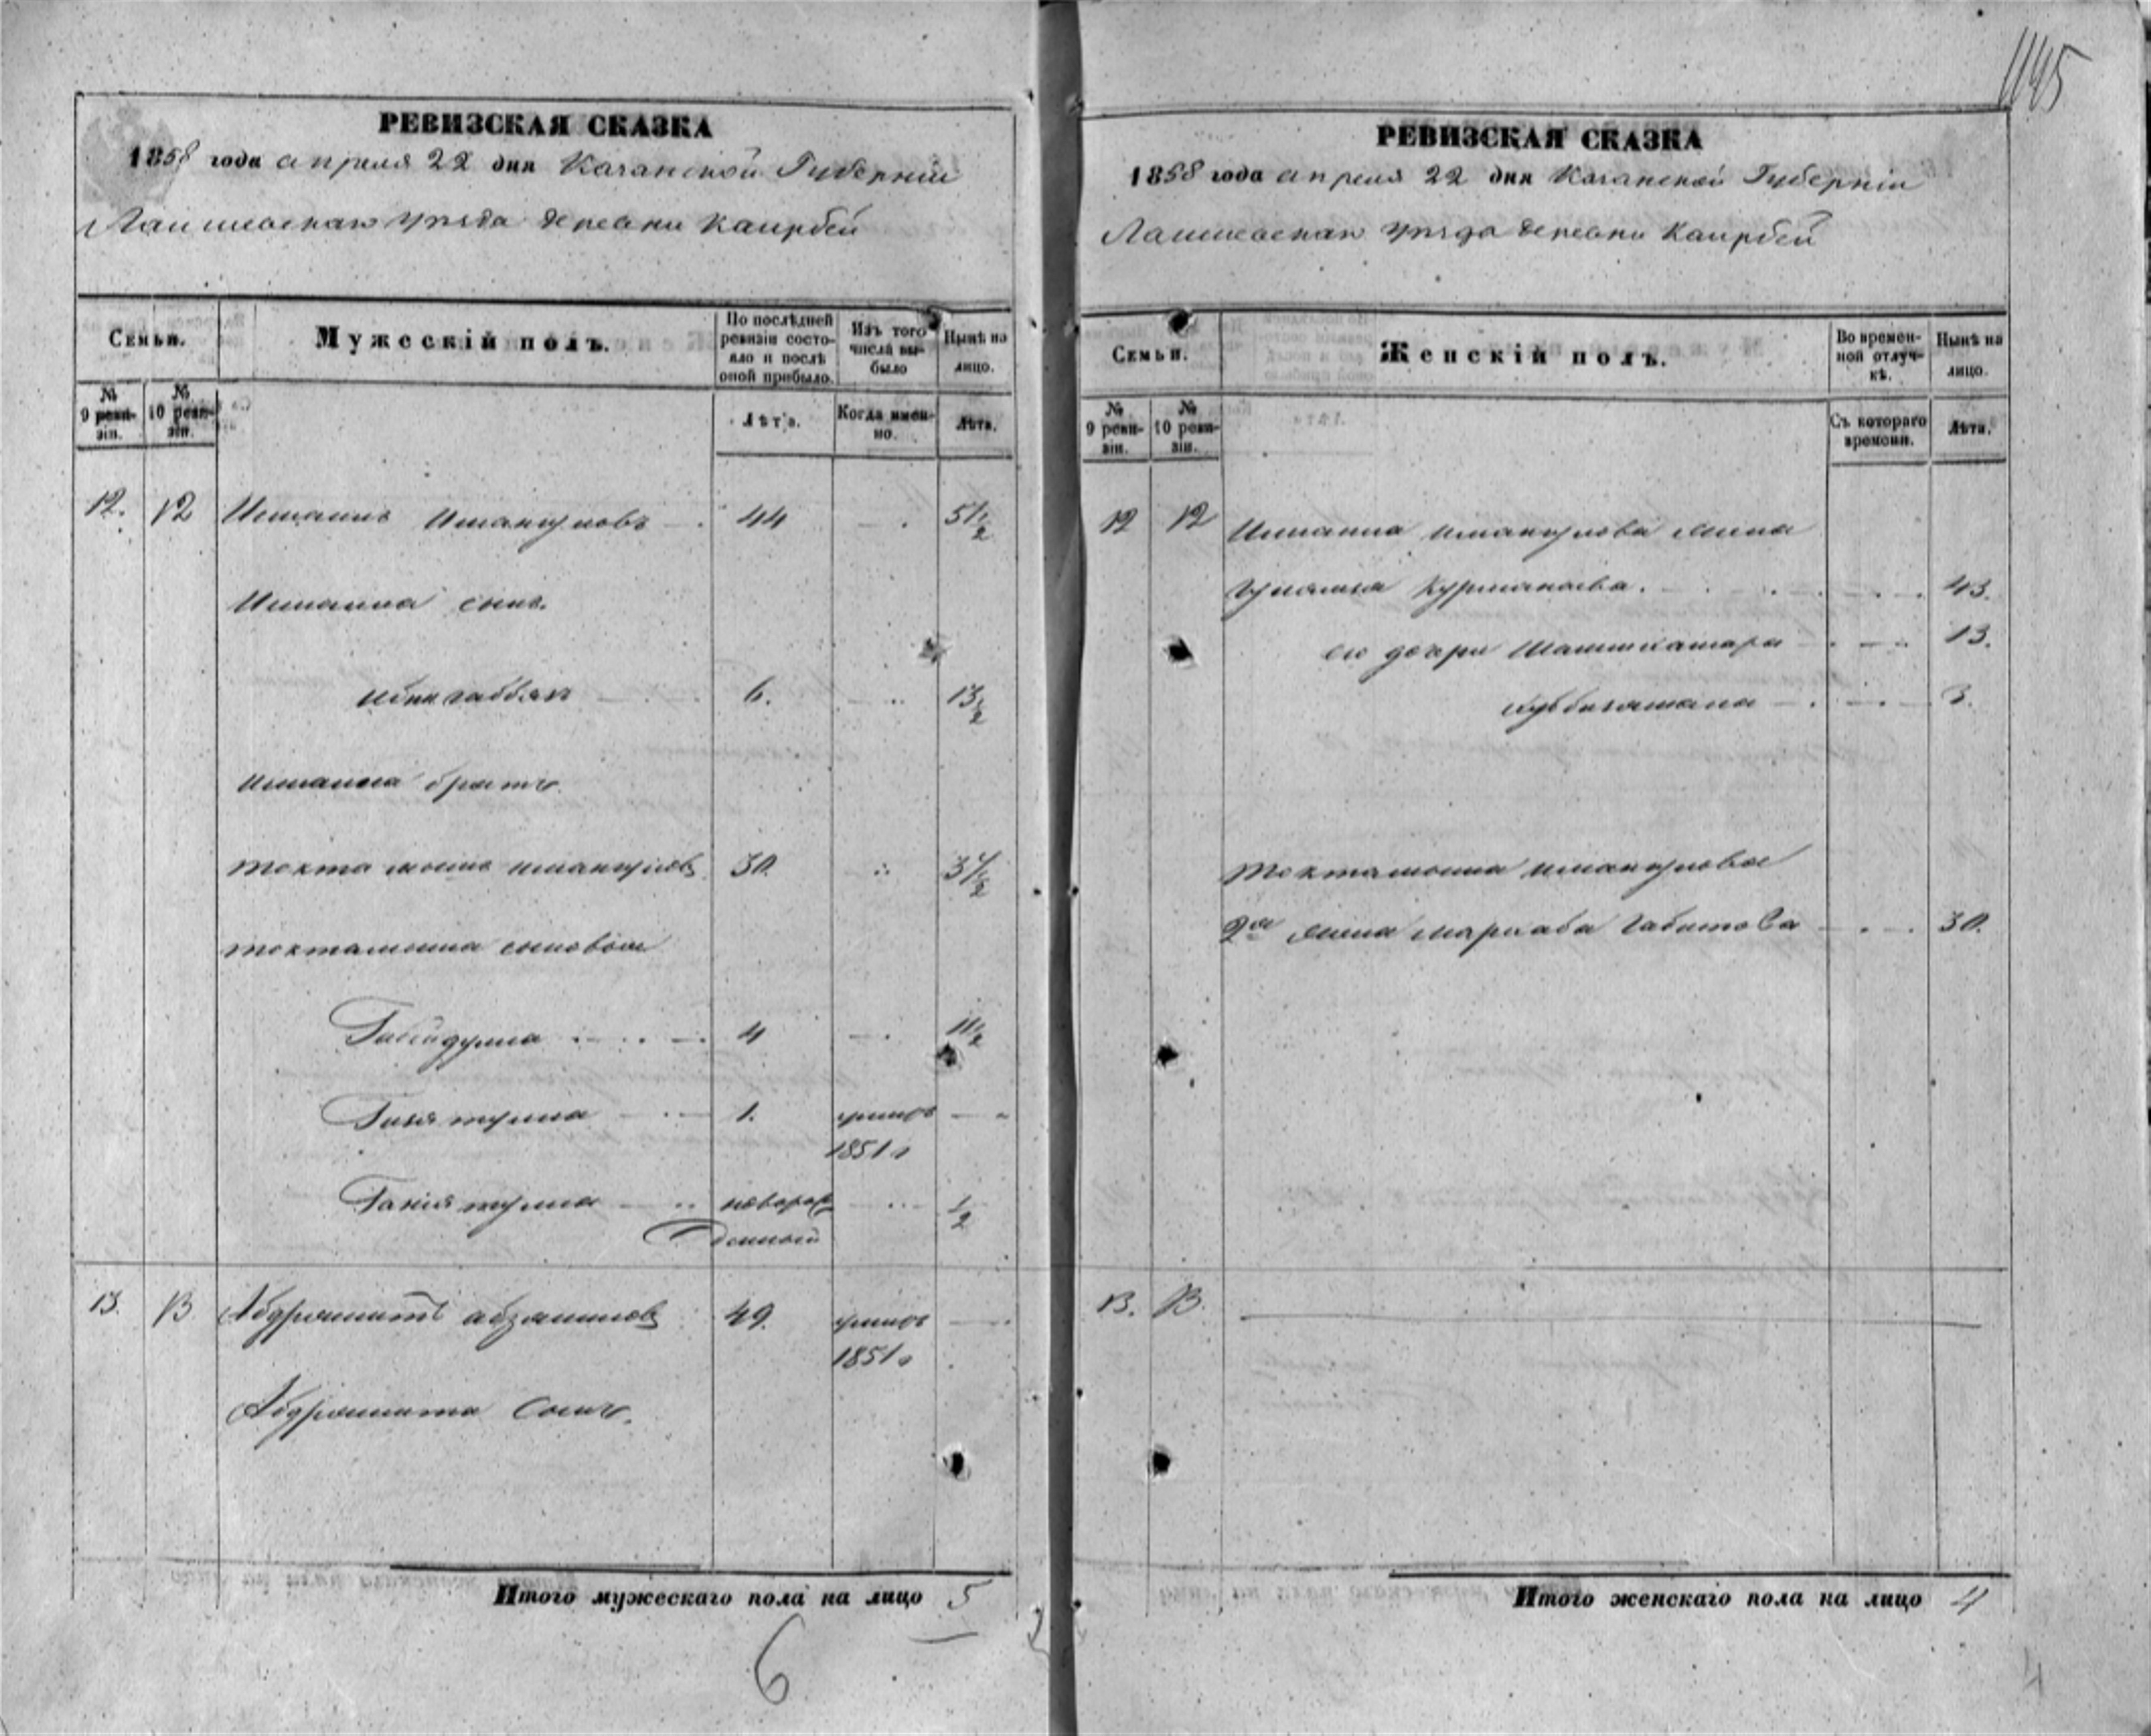 1145
РЕВИЗСКАЯ СКАЗКА
1858 года апреля 22 дня Казанской Губернiи
Лаишевскаго уѣзда деревни Каирбей
Семьи.
Мужескiй полъ.
По послѣдней ревизiи состояло и послѣ оной прибыло.
Изъ того числа выбыло
Нынѣ на лицо.
№ 9 ревизiи.
№ 10 ревизiи.
Лѣта.
Когда именно.
Лѣта.
12. 12 Ишманъ Иманкуловъ 44 51 1/2
Ишмана сынъ.
6. 13 1/2
Ишмана братъ.
Тохтамышъ Иманкуловъ 30 37 1/2
Тохтамыша сыновья
Габидулла 4 11 1/2
1. умеръ
1851 г
новорожденный 1/2
13. 13 Абдрашитъ 49. умеръ
1851 г
Абдрашита сынъ.
Итого мужескаго пола на лицо 5
6
РЕВИЗСКАЯ СКАЗКА
1858 года апреля 22 дня Казанской Губернiи
Лаишевскаго уѣзда деревни Каирбей
Семьи.
Женскiй полъ.
Во временной отлучкѣ.
Нынѣ на лицо.
№ 9 ревизiи.
№ 10 ревизiи.
Съ котораго времени.
Лѣта.
12 12 Ишмана Иманкулова жена
Курманаева. 43.
его дочери 13.
3.
Тохтамыша Иманкулова
2я жена Габитова 30.
13. 13.
Итого женскаго пола на лицо 4
4